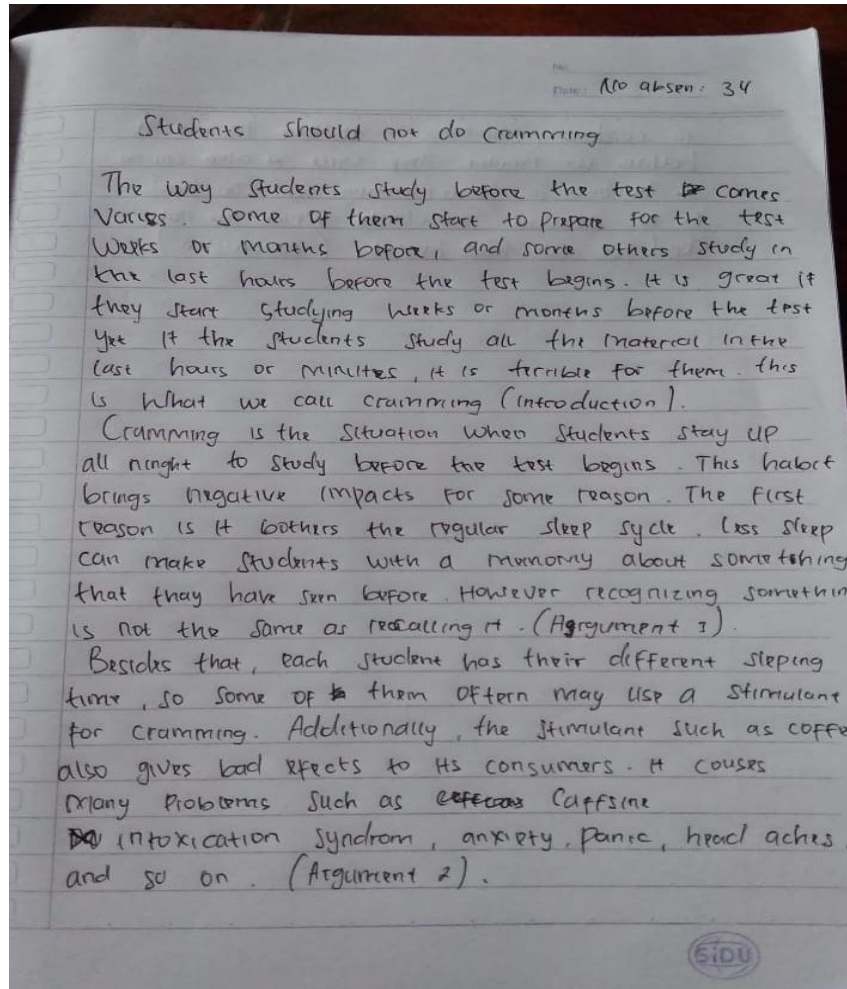 No
Date: No absen: 34
Students should not do Cramming
The way students study before the test comes
Varies. Some of them start to prepare for the test
weeks or months before, and some others study in
the last hours before the test begins. It is great if
they start studying weeks or months before the test
Yet if the students study all the material in the
last hours or minutes, it is terrible for them. this
is what we call cramming (introduction).
Cramming is the situation when students stay up
all ninght to study before the test begins. This habit
brings negative impacts for some reason. The first
reason is it bothers the regular sleep sycle. Less sleep
can make students with a memomy about sometshing
that thay have seen before. However recognizing somethin
is not the same as recalling it. (Agrgument 1).
Besides that, each student has their different sleping
time, so some of them oftern may use a stimulant
for cramming. Additionally, the stimulant such as coffe
also gives bad efects to its consumers. It couses
many Problems such as Caffeine
intoxication syndrom, anxiety, panic, head aches
and so on. (Argument 2).
SiDU